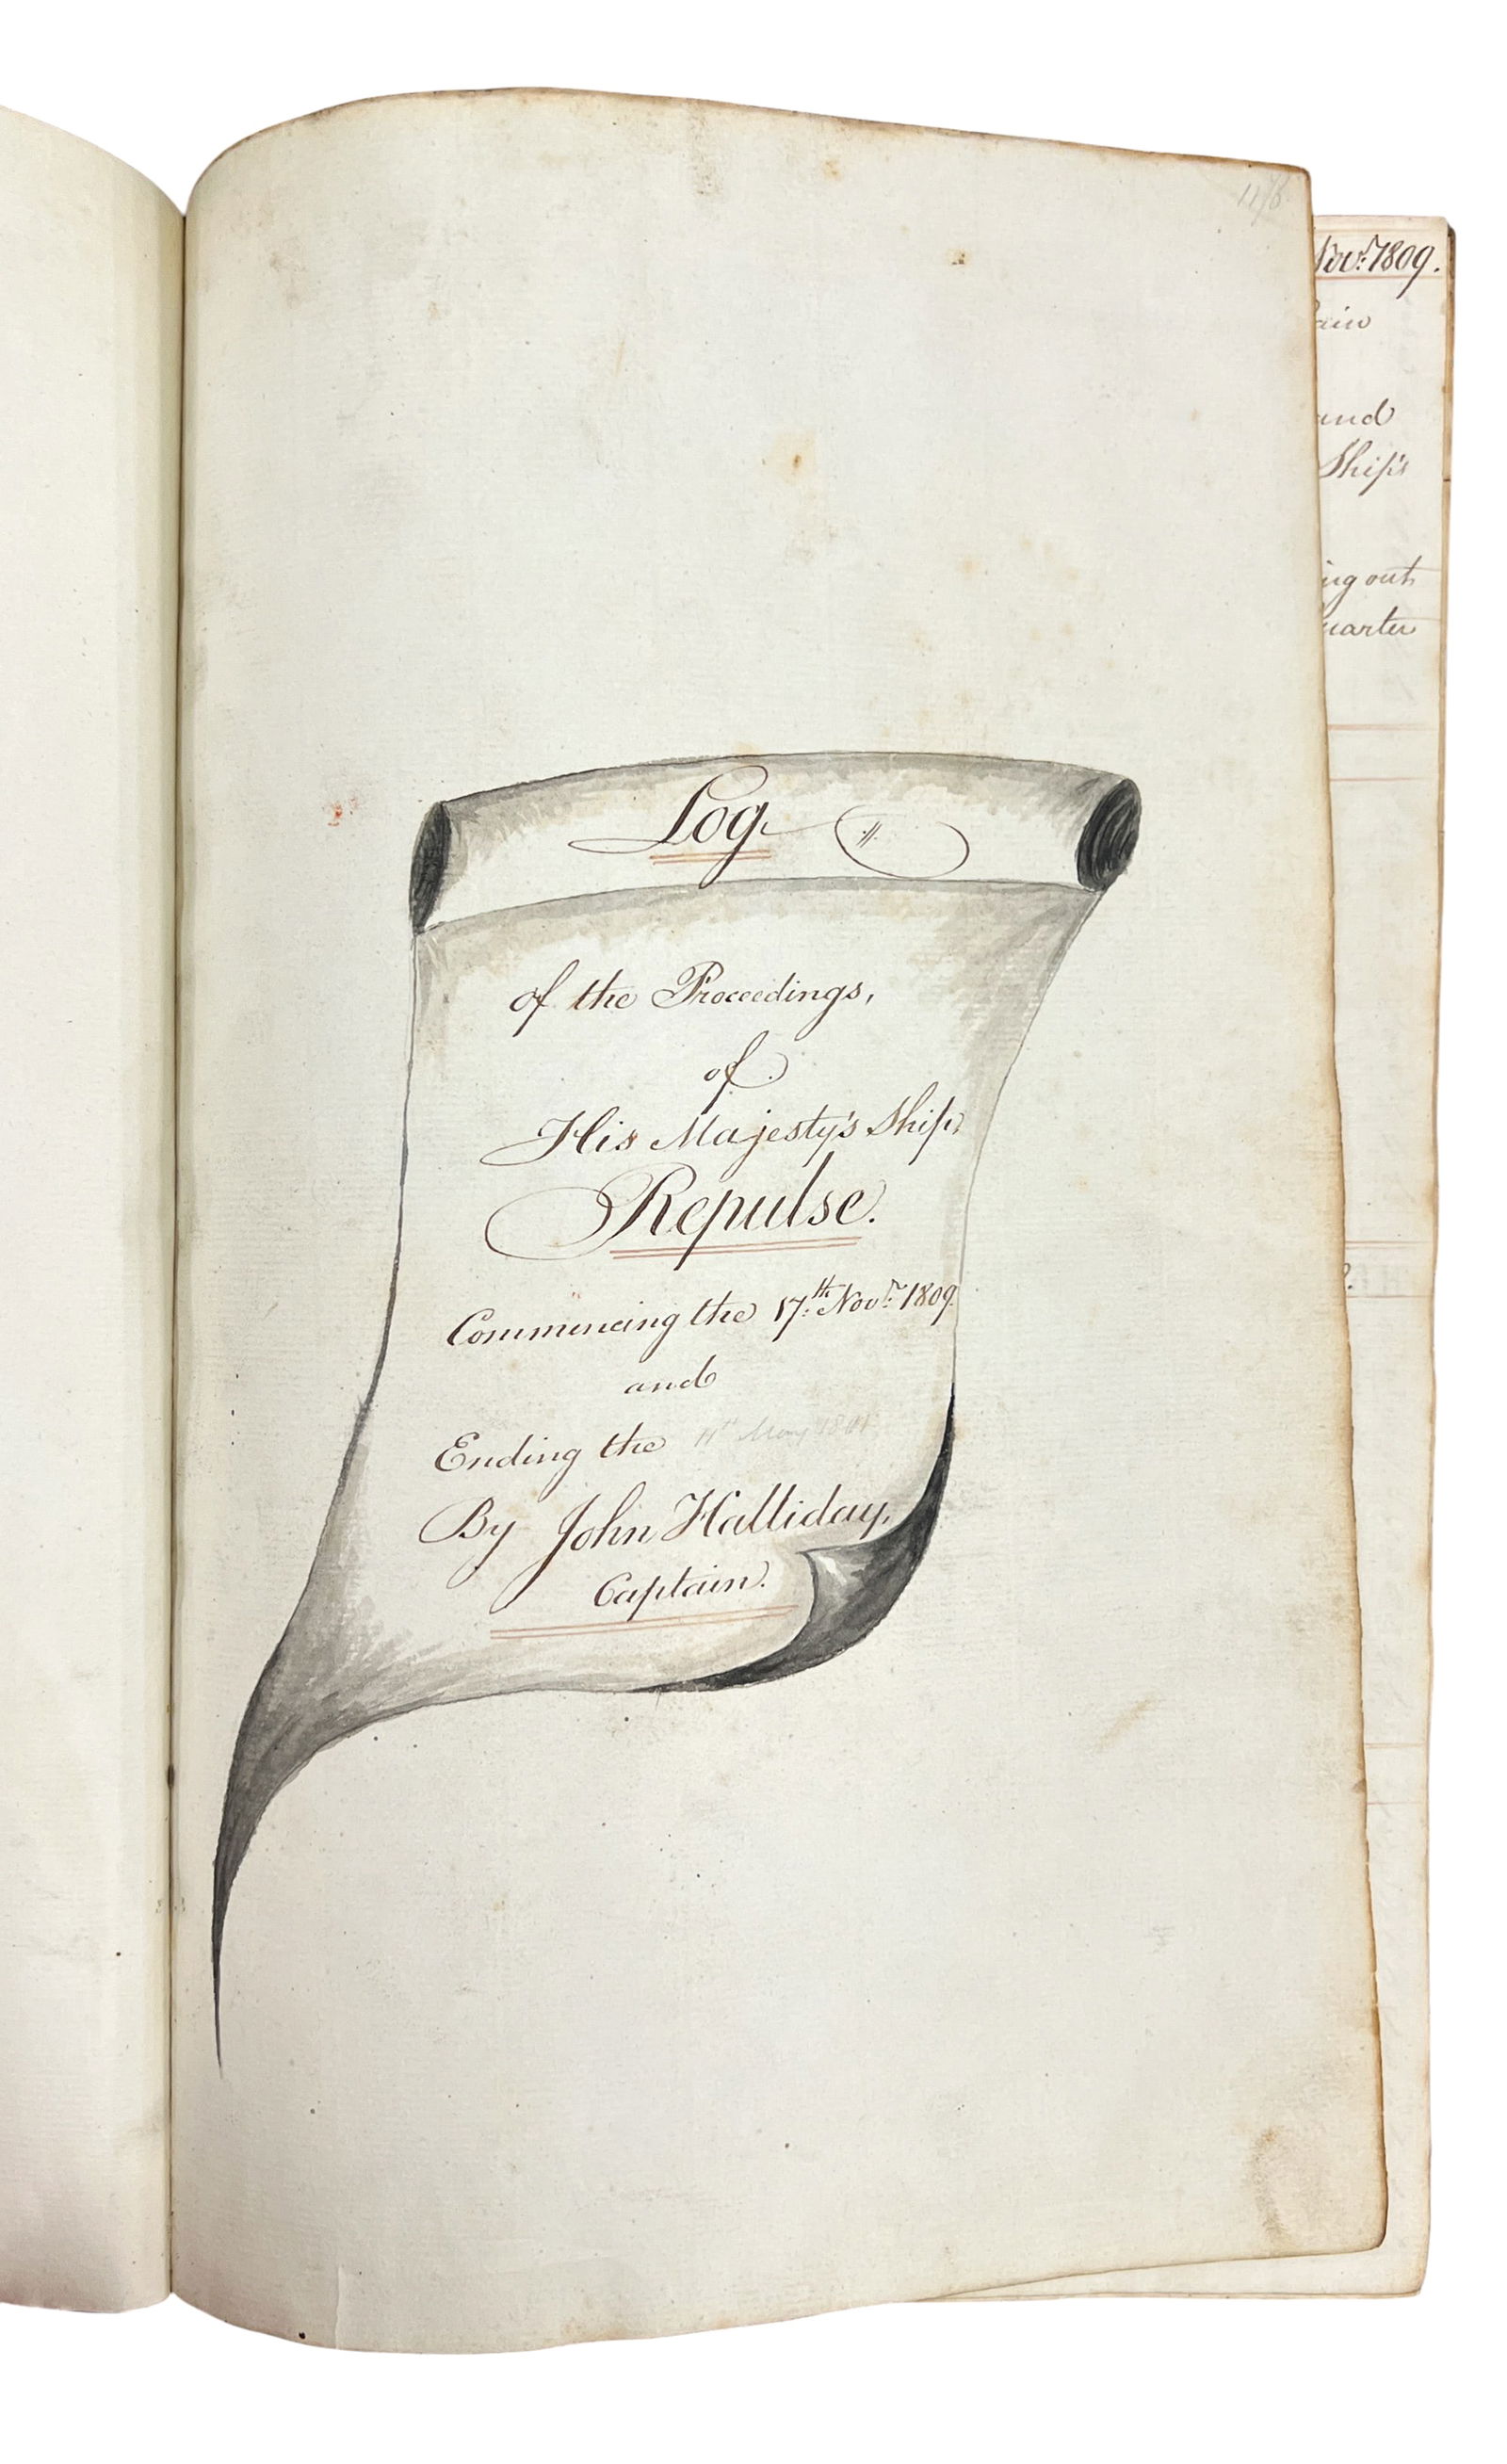 Log
of the Proceedings,
of
His Majesty's Ship
Repulse.
Commencing the 17.th Nov.r 1809.
and
Ending the 11th May
By John Halliday,
Captain.
Nov.r 1809.
and
Ship's
out